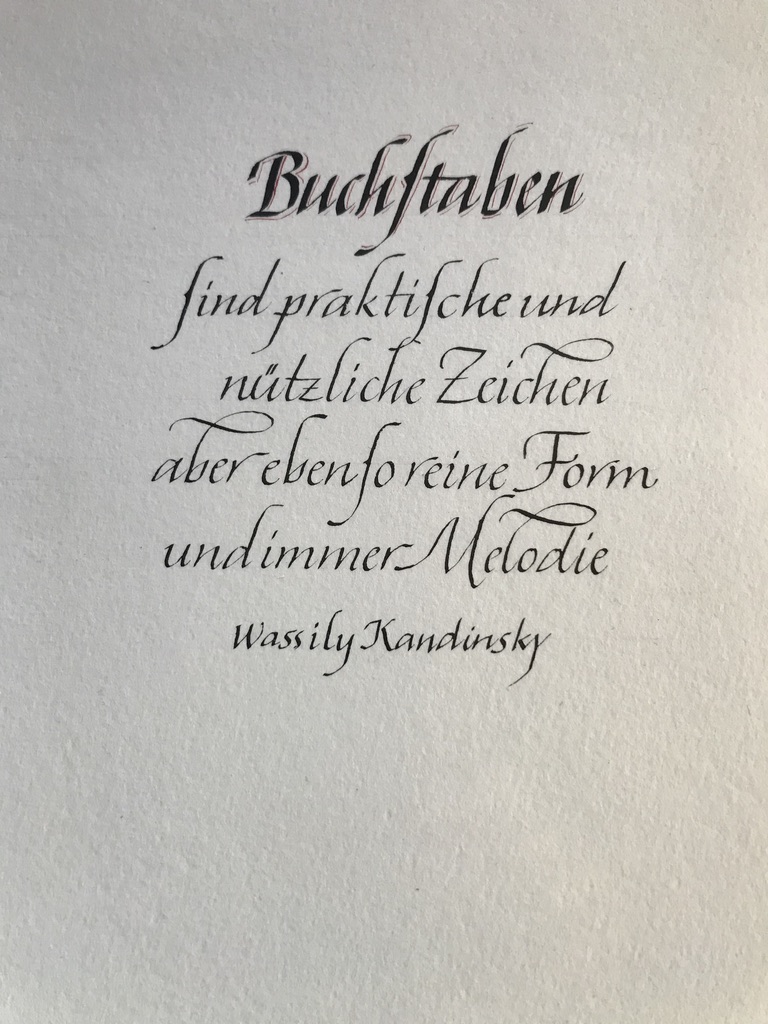 Buchſtaben
ſind praktiſche und
nützliche Zeichen
aber ebenſo reine Form
und immer Melodie
Wassily Kandinsky